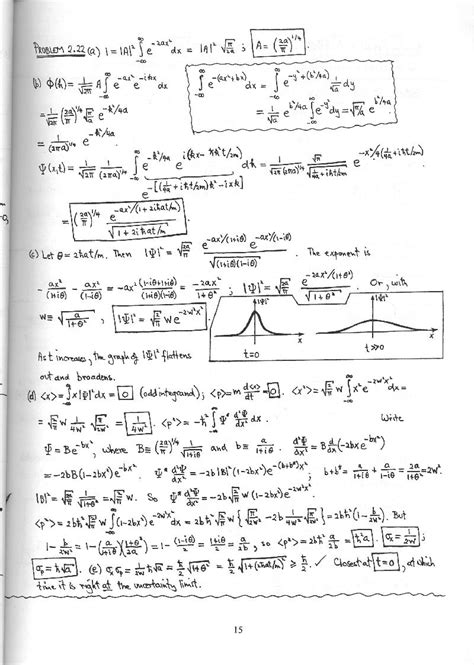 PROBLEM 2.22 (a) 1 = |A|² ∫_{-∞}^{∞} e^{-2ax²} dx = |A|² √(π/2a) ; A = (2a/π)^{1/4}.
(b) Φ(k) = 1/√2π A ∫_{-∞}^{∞} e^{-ax²} e^{-ikx} dx
∫_{-∞}^{∞} e^{-(ax²+bx)} dx = ∫_{-∞}^{∞} e^{-y²+(b²/4a)} 1/√a dy
= 1/√2π (2a/π)^{1/4} √(π/a) e^{-k²/4a}
= 1/√a e^{b²/4a} ∫_{-∞}^{∞} e^{-y²} dy = √(π/a) e^{b²/4a}
= 1/(2πa)^{1/4} e^{-k²/4a}
Ψ(x,t) = 1/√2π 1/(2πa)^{1/4} ∫_{-∞}^{∞} e^{-k²/4a} e^{i(kx - ħk²t/2m)} dk = 1/(√2π (2πa)^{1/4}) √π/√(1/4a + iħt/2m) e^{-x²/4(1/4a + iħt/2m)}
e^{-[(1/4a + iħt/2m)k² - ixk]}
= (2a/π)^{1/4} e^{-ax²/(1+2iħat/m)}/√(1+2iħat/m)
(c) Let θ = 2ħat/m. Then |Ψ|² = √(2a/π) e^{-ax²/(1+iθ)} e^{-ax²/(1-iθ)}/√((1+iθ)(1-iθ)). The exponent is
- ax²/(1+iθ) - ax²/(1-iθ) = -ax² (1-iθ+1+iθ)/((1+iθ)(1-iθ)) = -2ax²/(1+θ²) ; |Ψ|² = √(2a/π) e^{-2ax²/(1+θ²)}/√(1+θ²). Or, with
w ≡ √(a/(1+θ²)), |Ψ|² = √(2/π) w e^{-2w²x²}.
|Ψ|² x t=0
|Ψ|² x t>>0
As t increases, the graph of |Ψ|² flattens
out and broadens.
(d) <x> = ∫_{-∞}^{∞} x|Ψ|² dx = 0 (odd integrand); <p> = m d<x>/dt = 0. <x²> = √(2/π) w ∫_{-∞}^{∞} x² e^{-2w²x²} dx =
= √(2/π) w 1/4w² √(π/2w²) = 1/4w². <p²> = -ħ² ∫_{-∞}^{∞} Ψ* d²Ψ/dx² dx. Write
Ψ = Be^{-bx²}, where B ≡ (2a/π)^{1/4} 1/√(1+iθ) and b ≡ a/(1+iθ). d²Ψ/dx² = B d/dx (-2bx e^{-bx²})
= -2bB(1-2bx²)e^{-bx²} Ψ* d²Ψ/dx² = -2b|B|²(1-2bx²)e^{-(b+b*)x²}; b+b* = a/(1+iθ) + a/(1-iθ) = 2a/(1+θ²) = 2w².
|B|² = √(2a/π) 1/√(1+θ²) = √(2/π) w. So Ψ* d²Ψ/dx² = -2b √(2/π) w (1-2bx²) e^{-2w²x²}.
<p²> = 2bħ² √(2/π) w ∫_{-∞}^{∞} (1-2bx²) e^{-2w²x²} dx = 2bħ² √(2/π) w {√(π/2w²) - 2b 1/4w² √(π/2w²)} = 2bħ² (1 - b/2w²). But
1 - b/2w² = 1 - (a/(1+iθ))((1+θ²)/2a) = 1 - (1-iθ)/2 = (1+iθ)/2 = a/2b, so <p²> = 2bħ² a/2b = ħ²a. σₓ = 1/2w ;
σₚ = ħ√a. (e) σₓσₚ = 1/2w ħ√a = ħ/2 √(1+θ²) = ħ/2 √(1+(2ħat/m)²) ≥ ħ/2. ✓ Closest at t=0, at which
time it is right at the uncertainty limit.
15